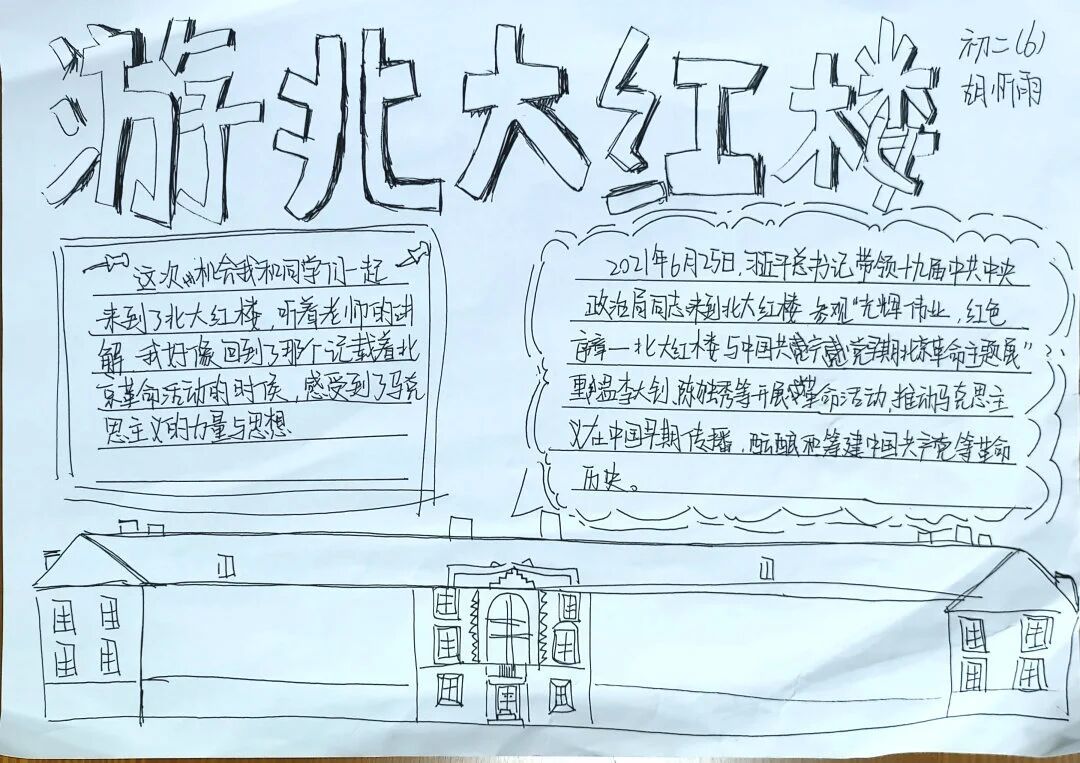 游北大红楼
初二(6)
胡昕雨
这次机会我和同学们一起
来到了北大红楼,听着老师的讲
解,我好像回到了那个记载着北
京革命活动的时候,感受到了马克
思主义的力量与思想
2021年6月25日,习近平总书记带领十九届中共中央
政治局同志来到北大红楼 参观“光辉伟业,红色
序章—北大红楼与中国共产党早期北京革命主题展”
重温李大钊、陈独秀等开展革命活动,推动马克思主
义在中国早期传播,酝酿和筹建中国共产党等革命
历史。